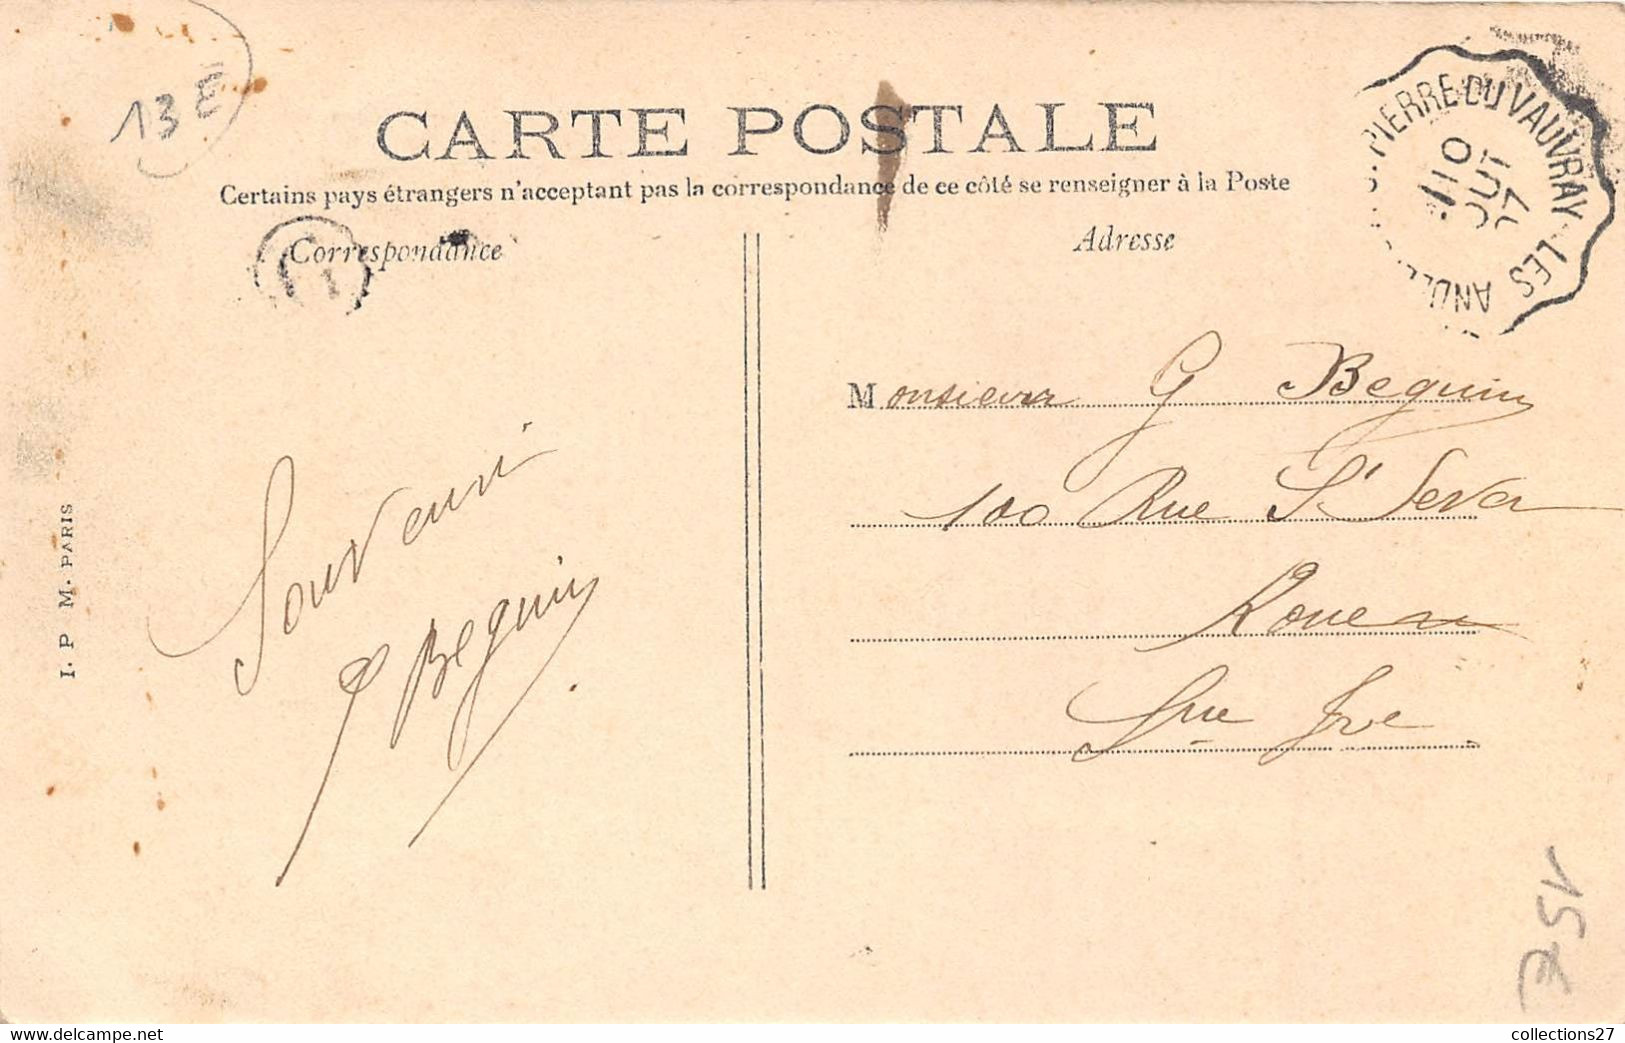 13 E
CARTE POSTALE
Certains pays étrangers n'acceptant pas la correspondance de ce côté se renseigner à la Poste
Correspondance
Adresse
PIERRE DU VAUVRAY LES AND
10
JUT
07
Monsieur G Beguin
100 Rue St Sever
Rouen
Sne Ire
Souvenir
Beguin
I. P M. PARIS
15
collections27